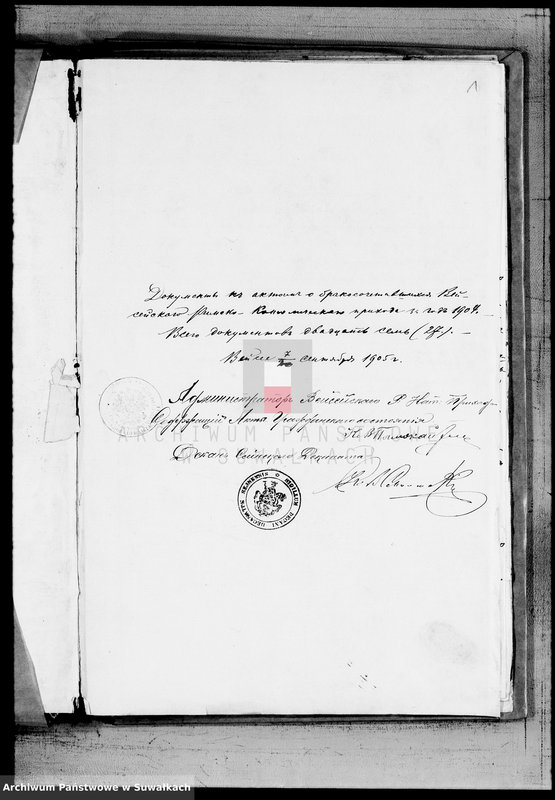 1
Документы къ актамъ о бракосочетавшихся Вей-
сейскаго Римско-Католическаго прихода за годъ 1904.
Всего документовъ двадцать семь (27).
Вейсее 7/20 сентября 1905 г.
Администраторъ Вейсейскаго Р. Кат. Прихода
Содержащій Акты Гражданскаго состоянія
Кс. В.
Деканъ Сейнскаго Деканата
Кс.
ARCHIWUM PAŃSTWOWE
W SUWAŁKACH
SIGILLUM DECANI DECANATUS SEJNENSIS
Archiwum Państwowe w Suwałkach